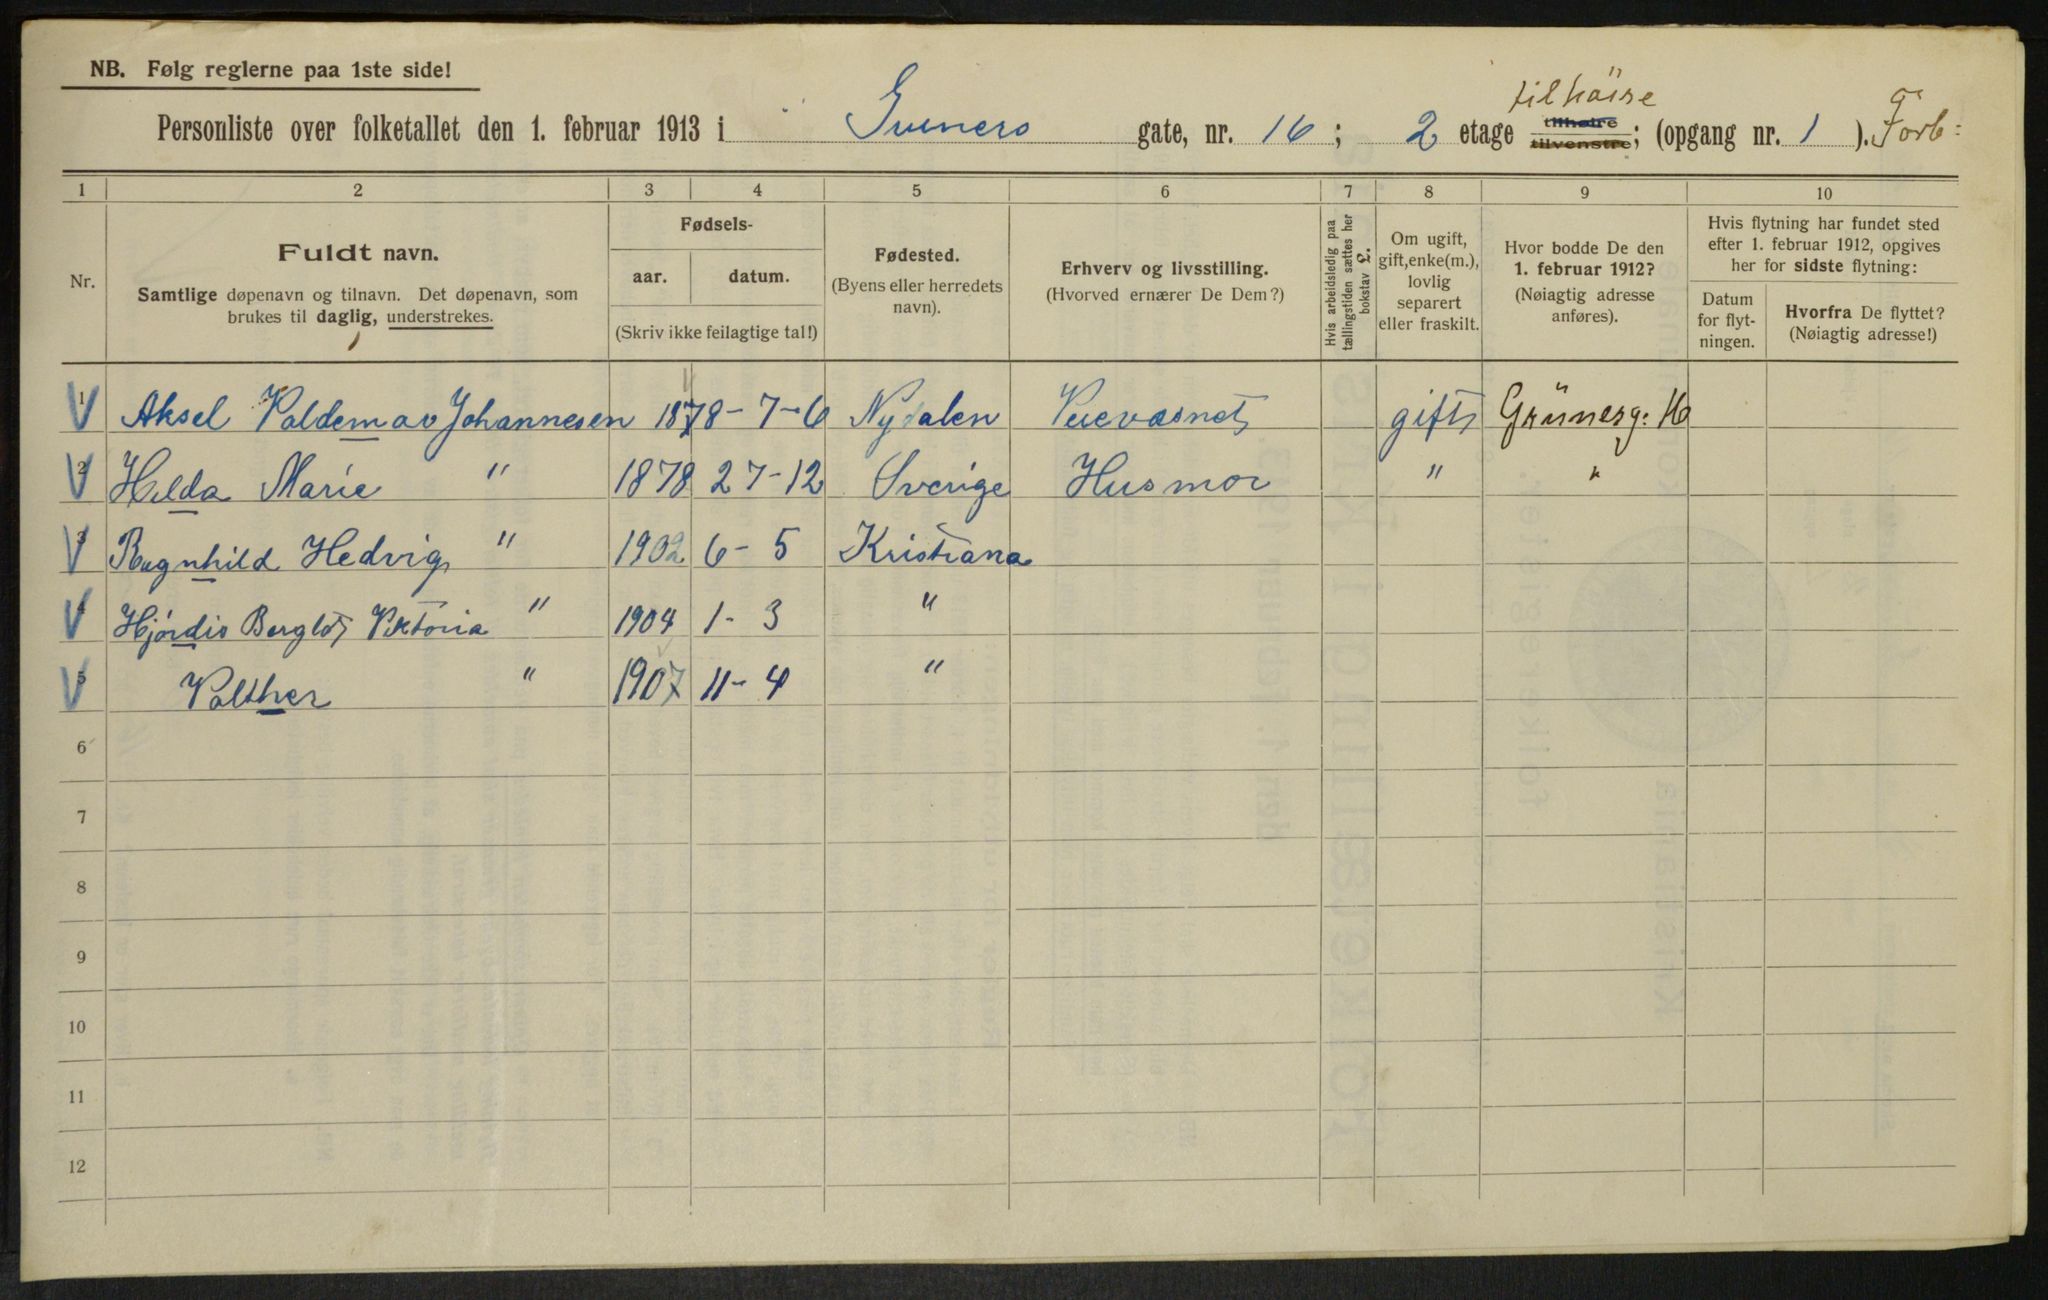 NB. Følg reglerne paa 1ste side!
Personliste over folketallet den 1. februar 1913 i Gruners gate, nr. 16; 2 etage tilhøire tilhøire tilvenstre; (opgang nr. 1). Forb:
1 2 3 4 5 6 7 8 9 10
Nr.
Fuldt navn.
Samtlige døpenavn og tilnavn. Det døpenavn, som
brukes til daglig, understrekes.
Fødsels-
aar. datum.
(Skriv ikke feilagtige tal!)
Fødested.
(Byens eller herredets
navn).
Erhverv og livsstilling.
(Hvorved ernærer De Dem?)
Hvis arbeidsledig paa
tællingstiden sættes her
bokstav L.
Om ugift,
gift, enke(m.),
lovlig
separert
eller fraskilt.
Hvor bodde De den
1. februar 1912?
(Nøiagtig adresse
anføres).
Hvis flytning har fundet sted
efter 1. februar 1912, opgives
her for sidste flytning:
Datum
for flyt-
ningen.
Hvorfra De flyttet?
(Nøiagtig adresse!)
1 Aksel Valdemar Johannesen 1878 - 7 - 6 Nydalen gift Grünersg: 16
2 Hilda Marie " 1878 27-12 Sverige Husmor " "
3 Ragnhild Hedvig " 1902 6 - 5 Kristiana
4 Hjórdis Berglót Viktoria " 1904 1 - 3 "
5 Valther " 1907 11 - 4 "
6
7
8
9
10
11
12